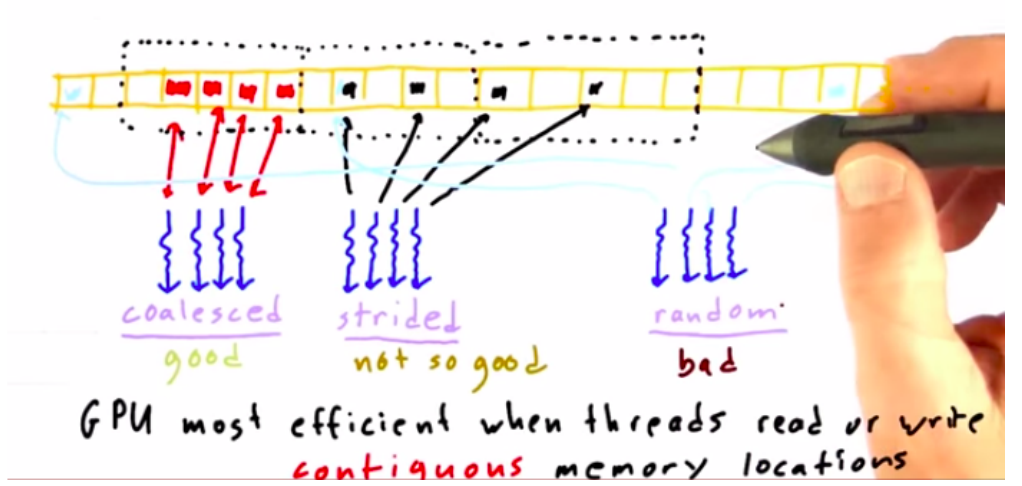 coalesced strided random
good not so good bad
GPU most efficient when threads read or write
contiguous memory locations